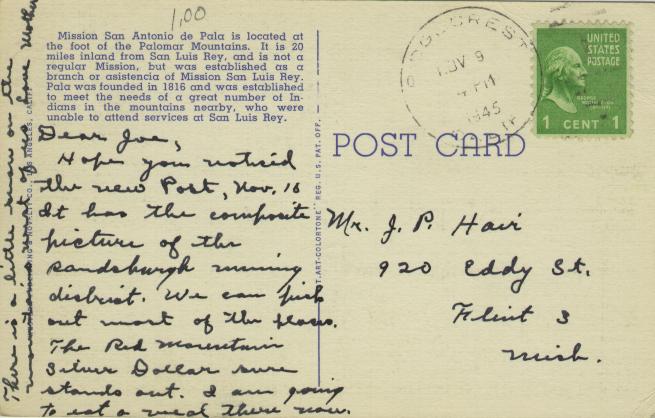 1.00
Mission San Antonio de Pala is located at
the foot of the Palomar Mountains. It is 20
miles inland from San Luis Rey, and is not a
regular Mission, but was established as a
branch or asistencia of Mission San Luis Rey.
Pala was founded in 1816 and was established
to meet the needs of a great number of In-
dians in the mountains nearby, who were
unable to attend services at San Luis Rey.
Dear Joe,
Hope you noticed
the new Post, Nov. 10
It has the composite
picture of the
Randsburgh mining
district. We can pick
out most of the places.
The Red Mountain
Silver Dollar sure
stands out. I am going
to eat a meal there now.
There is a little snow on the
mountains most of us have Mother
NOV 9
4 PM
1945
UNITED
STATES
POSTAGE
1 CENT 1
POST CARD
Mr. J. P. Hair
920 Eddy St.
Flint 3
Mich.
NOVELTY CO., LOS ANGELES, CALIF.
ART-COLORTONE" REG. U.S. PAT. OFF.